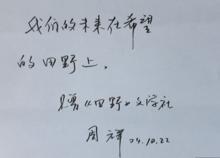 我们的未来在希望
的田野上。
题赠《田野》文学社
周祥 04.10.22